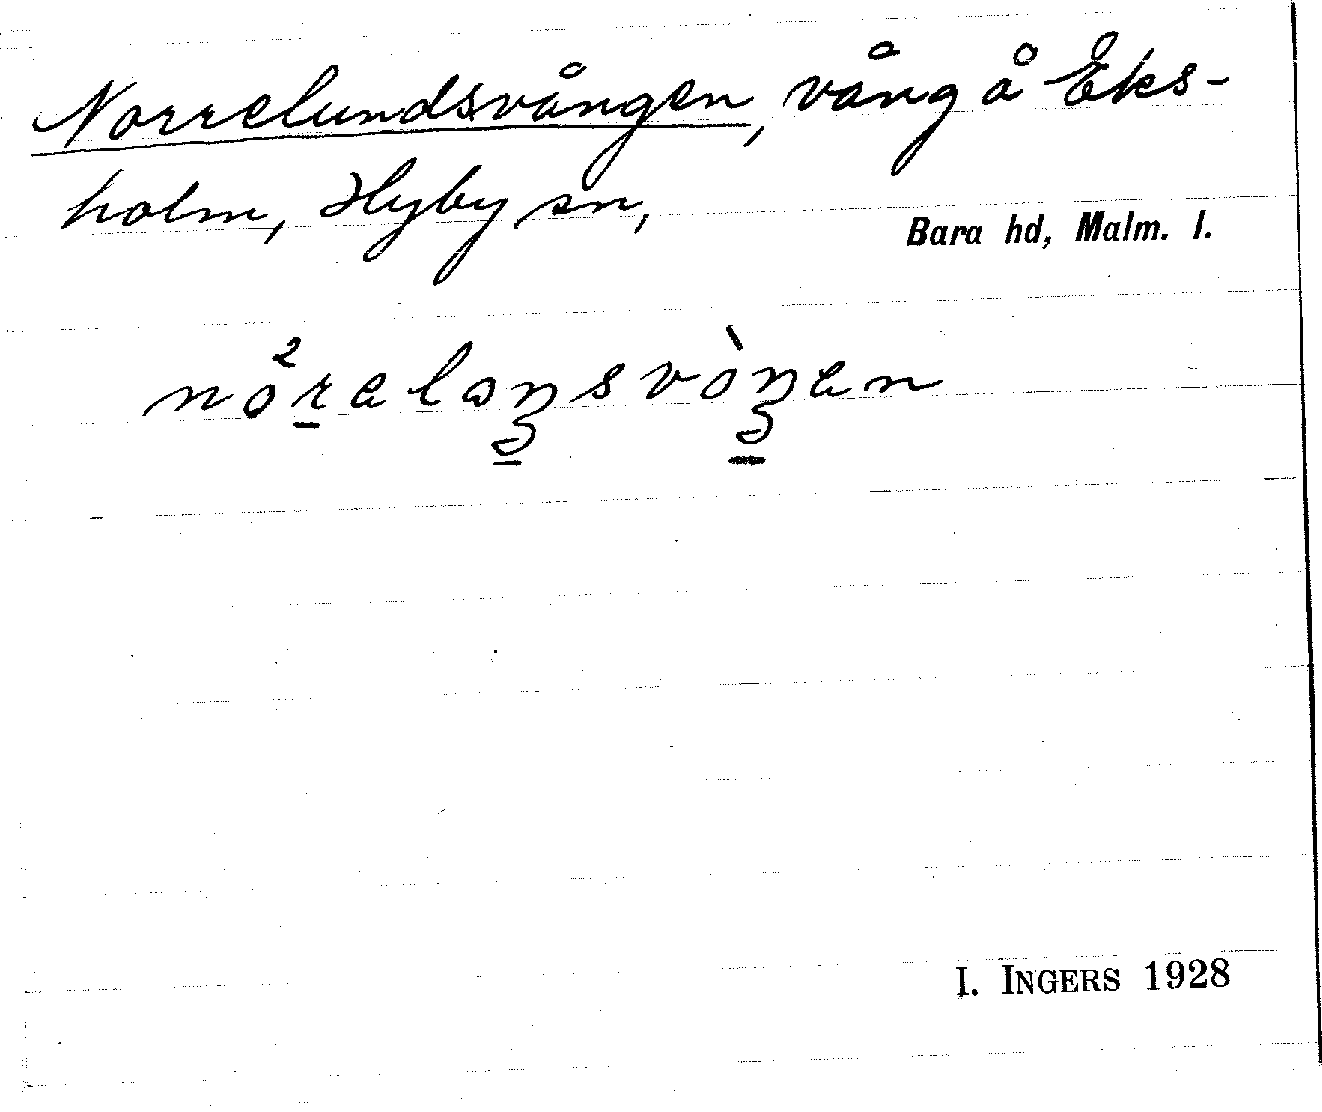 Norrelundsvången, vång å Eks-
holm, Hyby sn,
Bara hd, Malm. l.
I. INGERS 1928